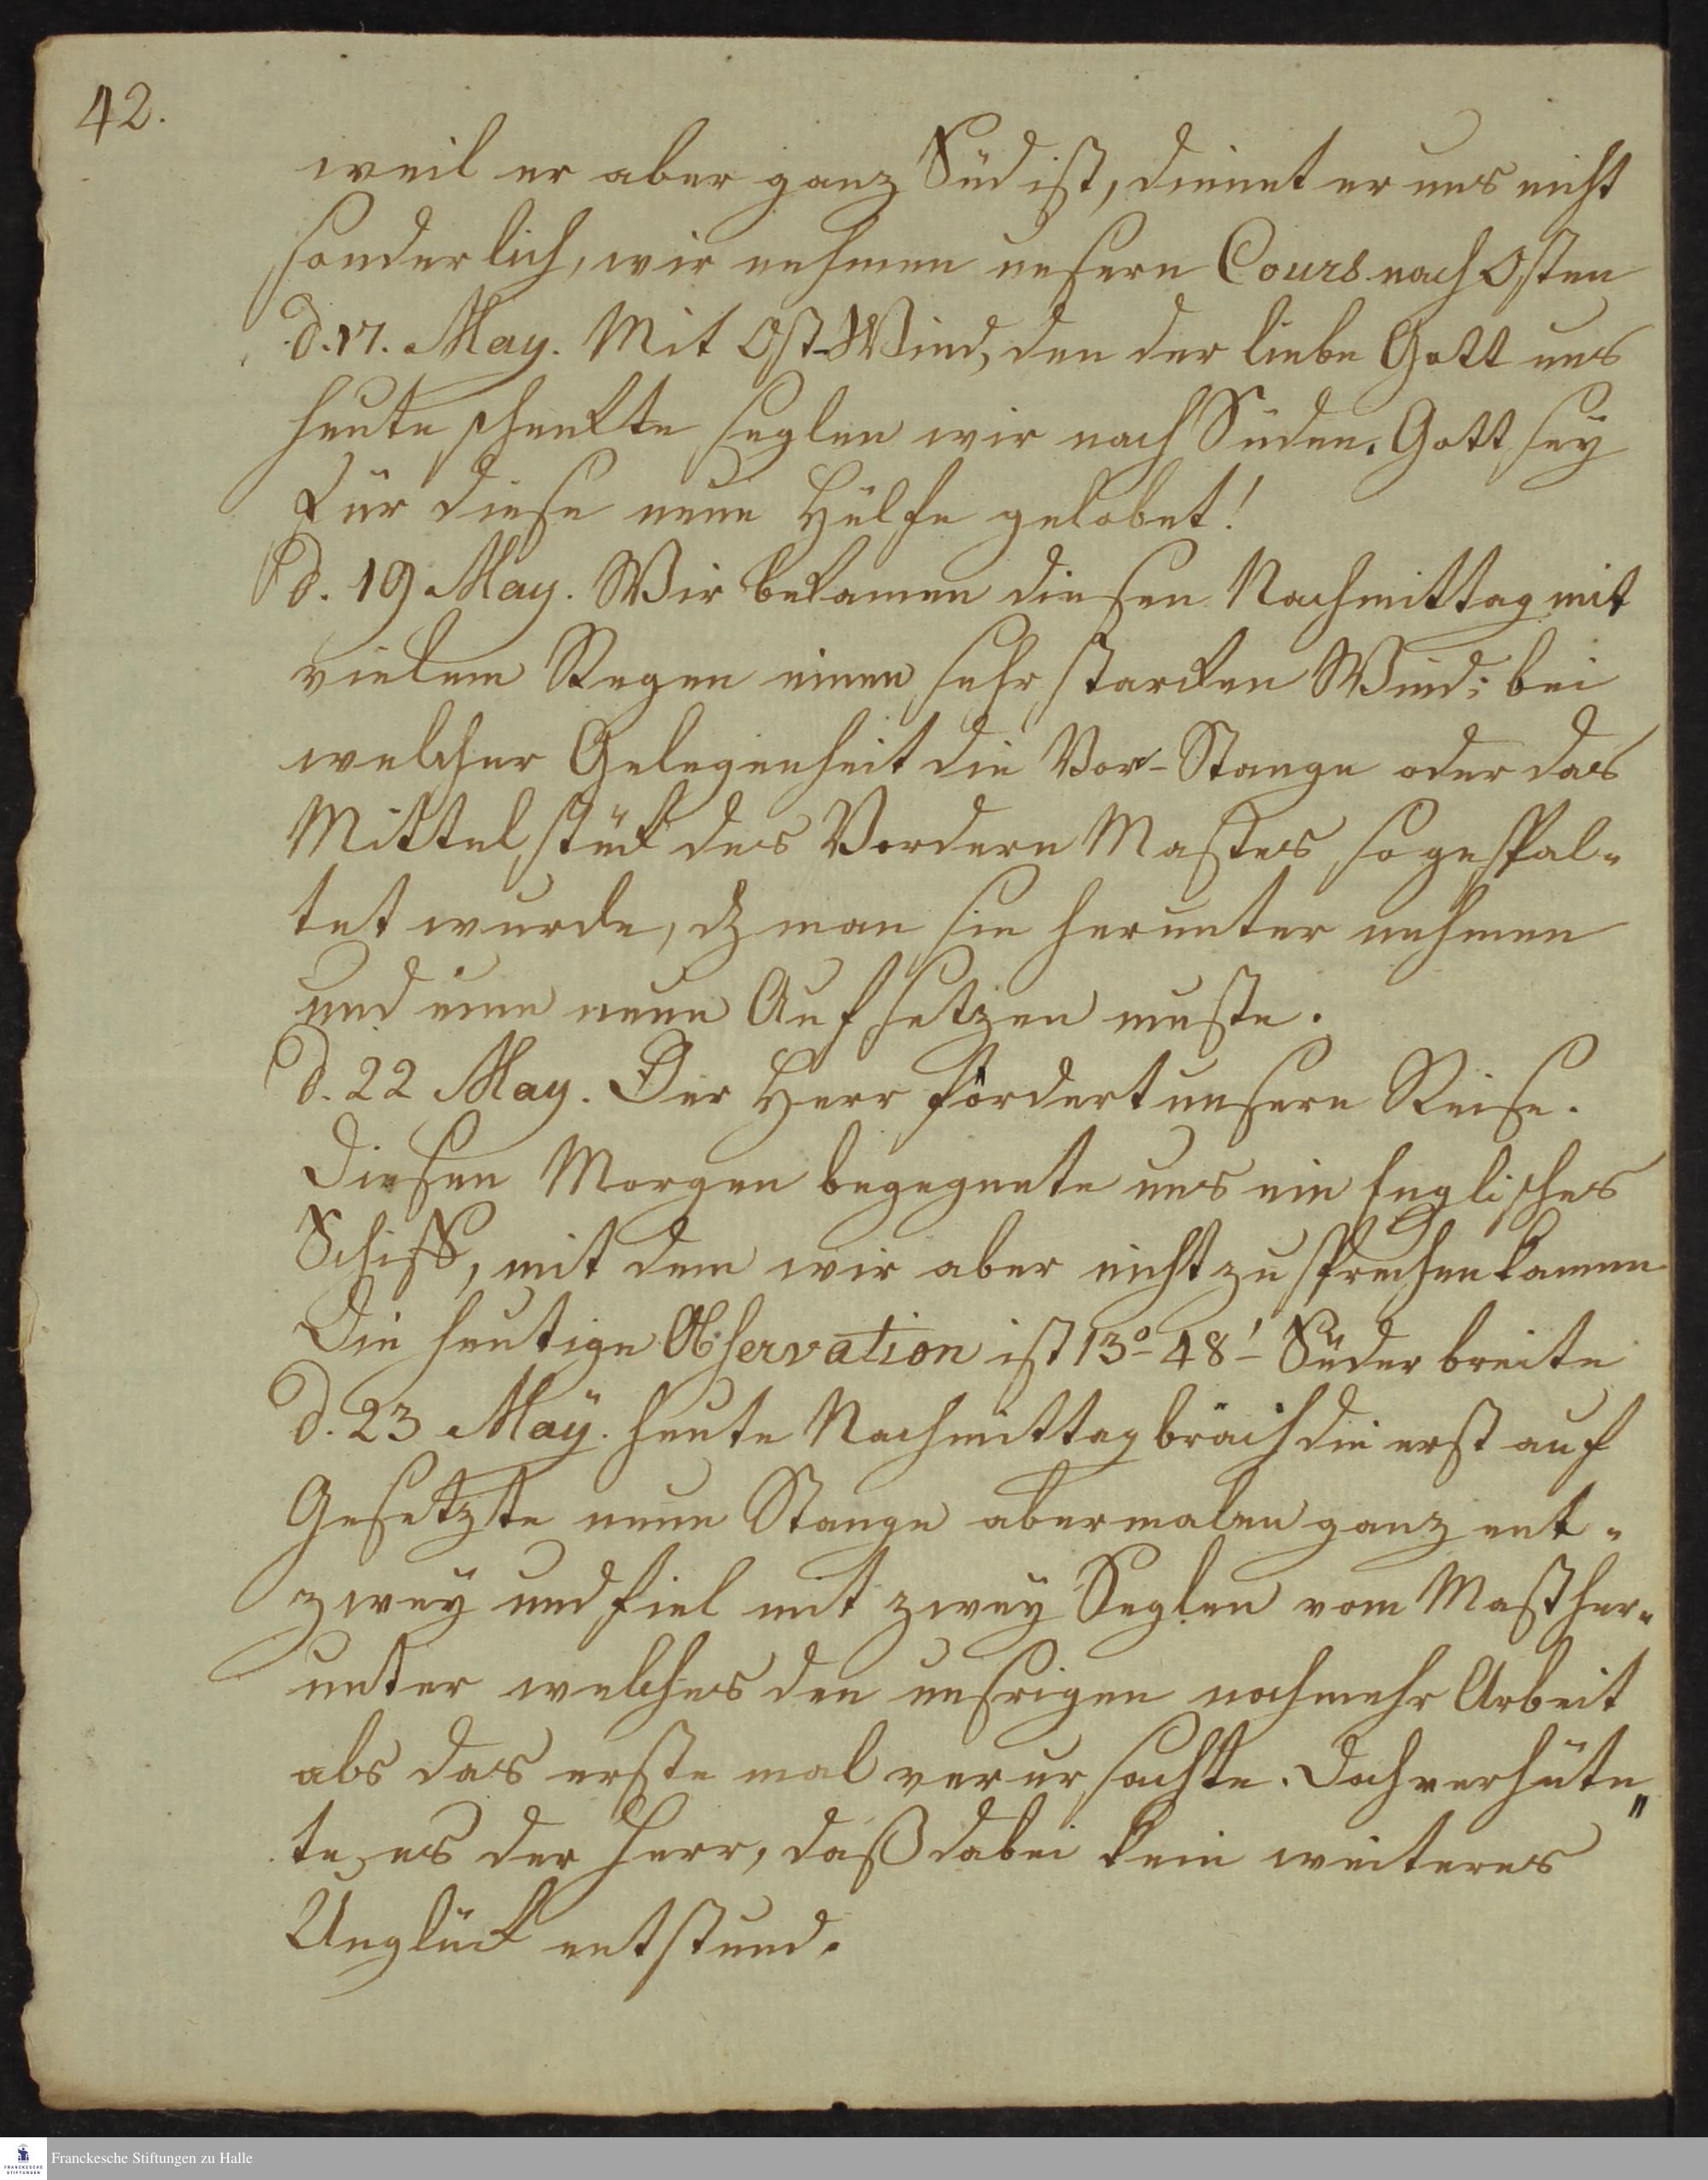 42.
weil er aber ganz Süd ist, dienet er uns nicht
sonderlich, wir nehmen unsern Cours nach Osten
d. 17. May. Mit Ost-Wind, den der liebe Gott uns
heute schenkte seglen wir nach Süden. Gott seÿ
für diese neue Hülfe gelobet!
d. 19 May. Wir bekamen diesen Nachmittag mit
vielem Regen einen sehr starcken Wind; bei
welcher Gelegenheit die Vor-Stange oder das
Mittel stük des Vordern Mastes so gespal-
tet wurde, dz man sie herunter nehmen
und eine neue Auf setzen muste.
d. 22 May. Der Herr fördert unsere Reise.
Diesen Morgen begegnete uns ein Englisches
Schiff, mit dem wir aber nicht zu sprechen kamen
Die heutige Observation ist 13° 48' Süder breite
d. 23 Maÿ. heute Nachmittag brach die erst auf
Gesetzte neue Stange abermalen ganz ent-
zweÿ und fiel mit zweÿ Seglen vom Mast her-
unter welches den unsrigen noch mehr Arbeit
als das erste mal verur sachte. Doch verhüte
te es der Herr, daß dabei kein weiteres
Unglück entstund.
Franckesche Stiftungen zu Halle
FRANCKESCHE
STIFTUNGEN